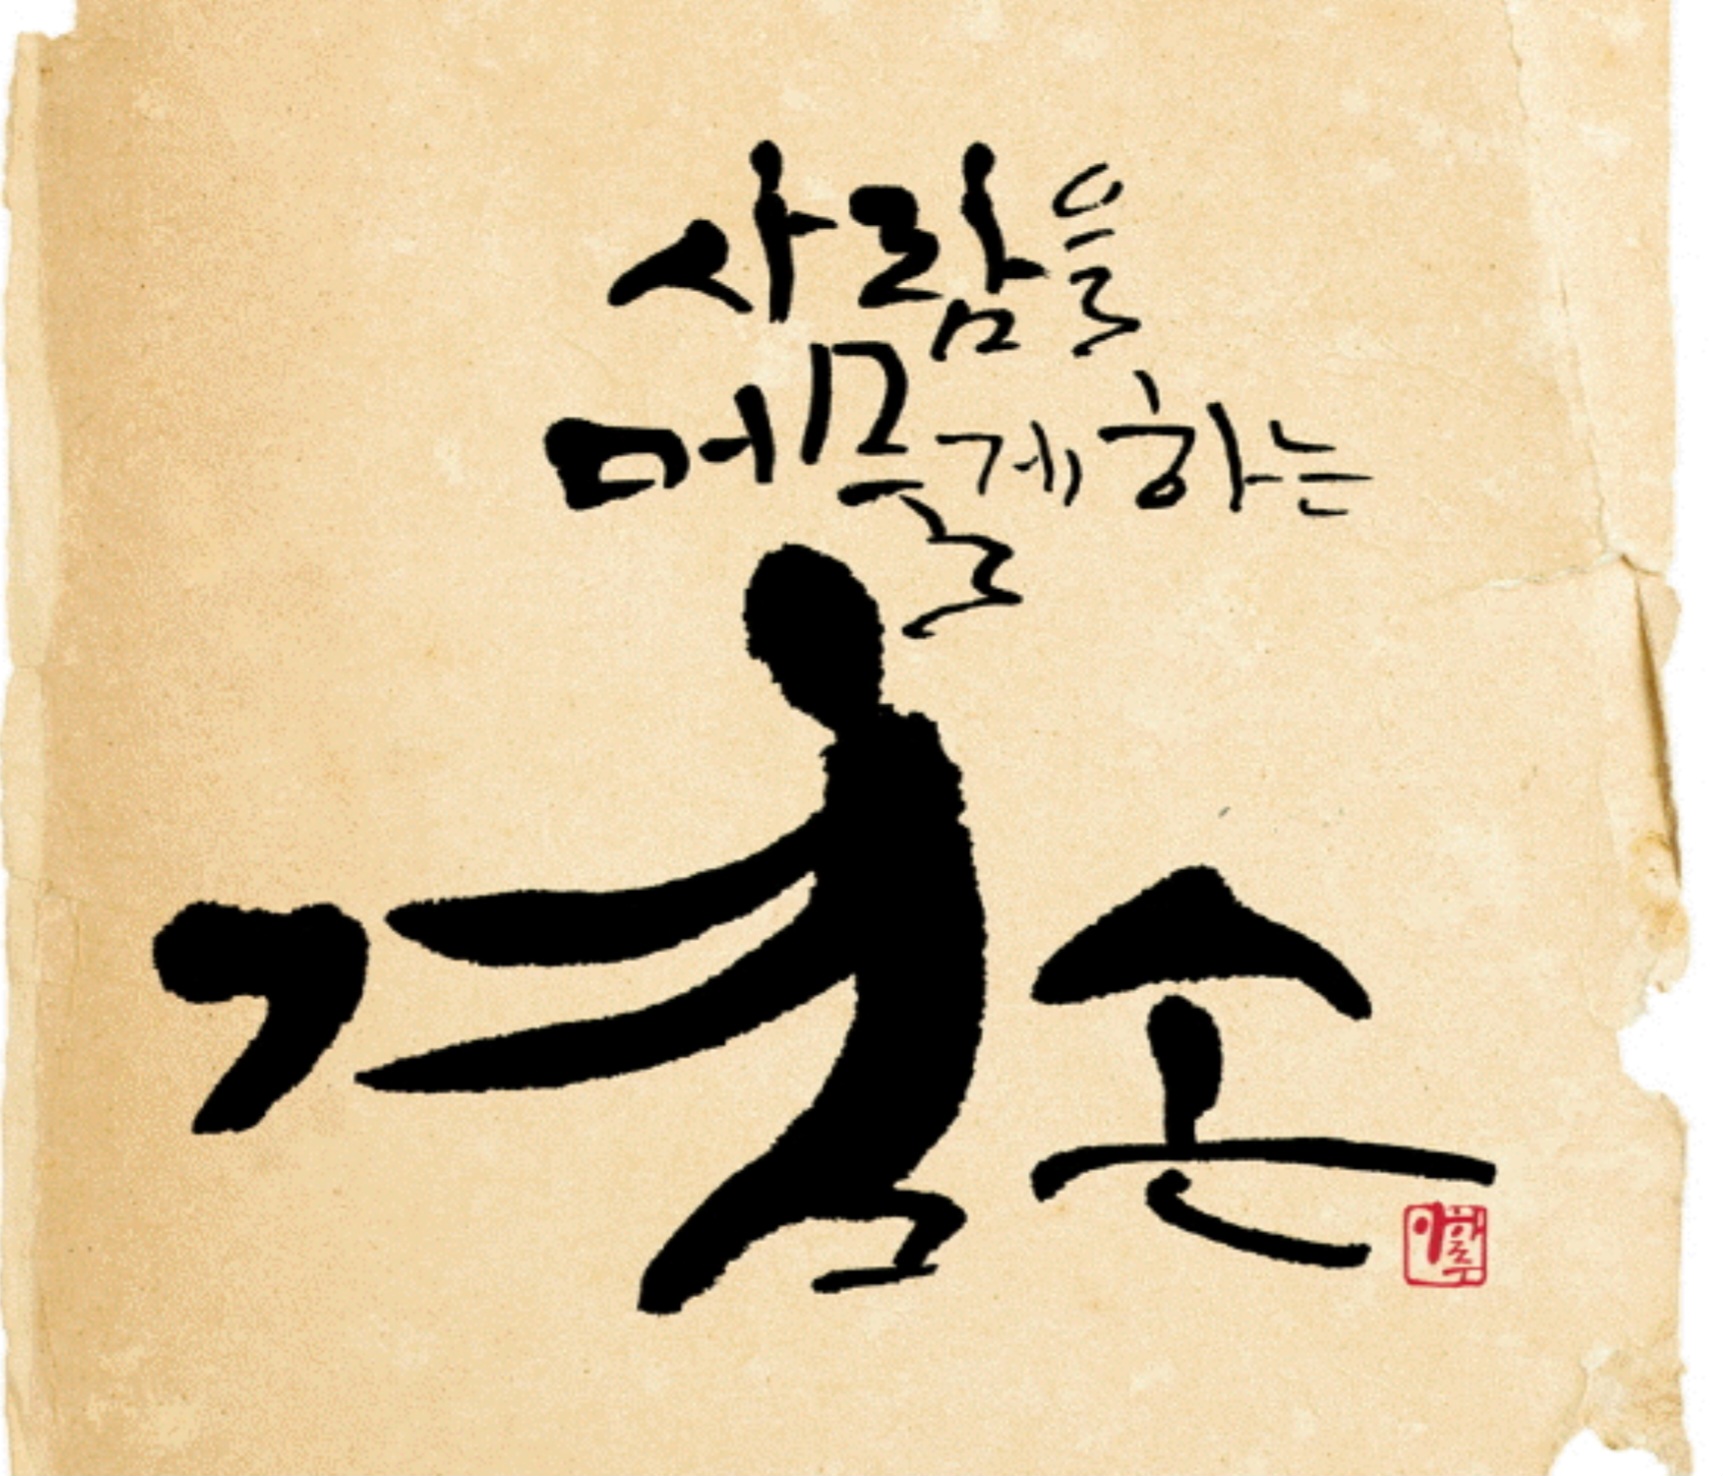 사람을
머물게하는
겸손